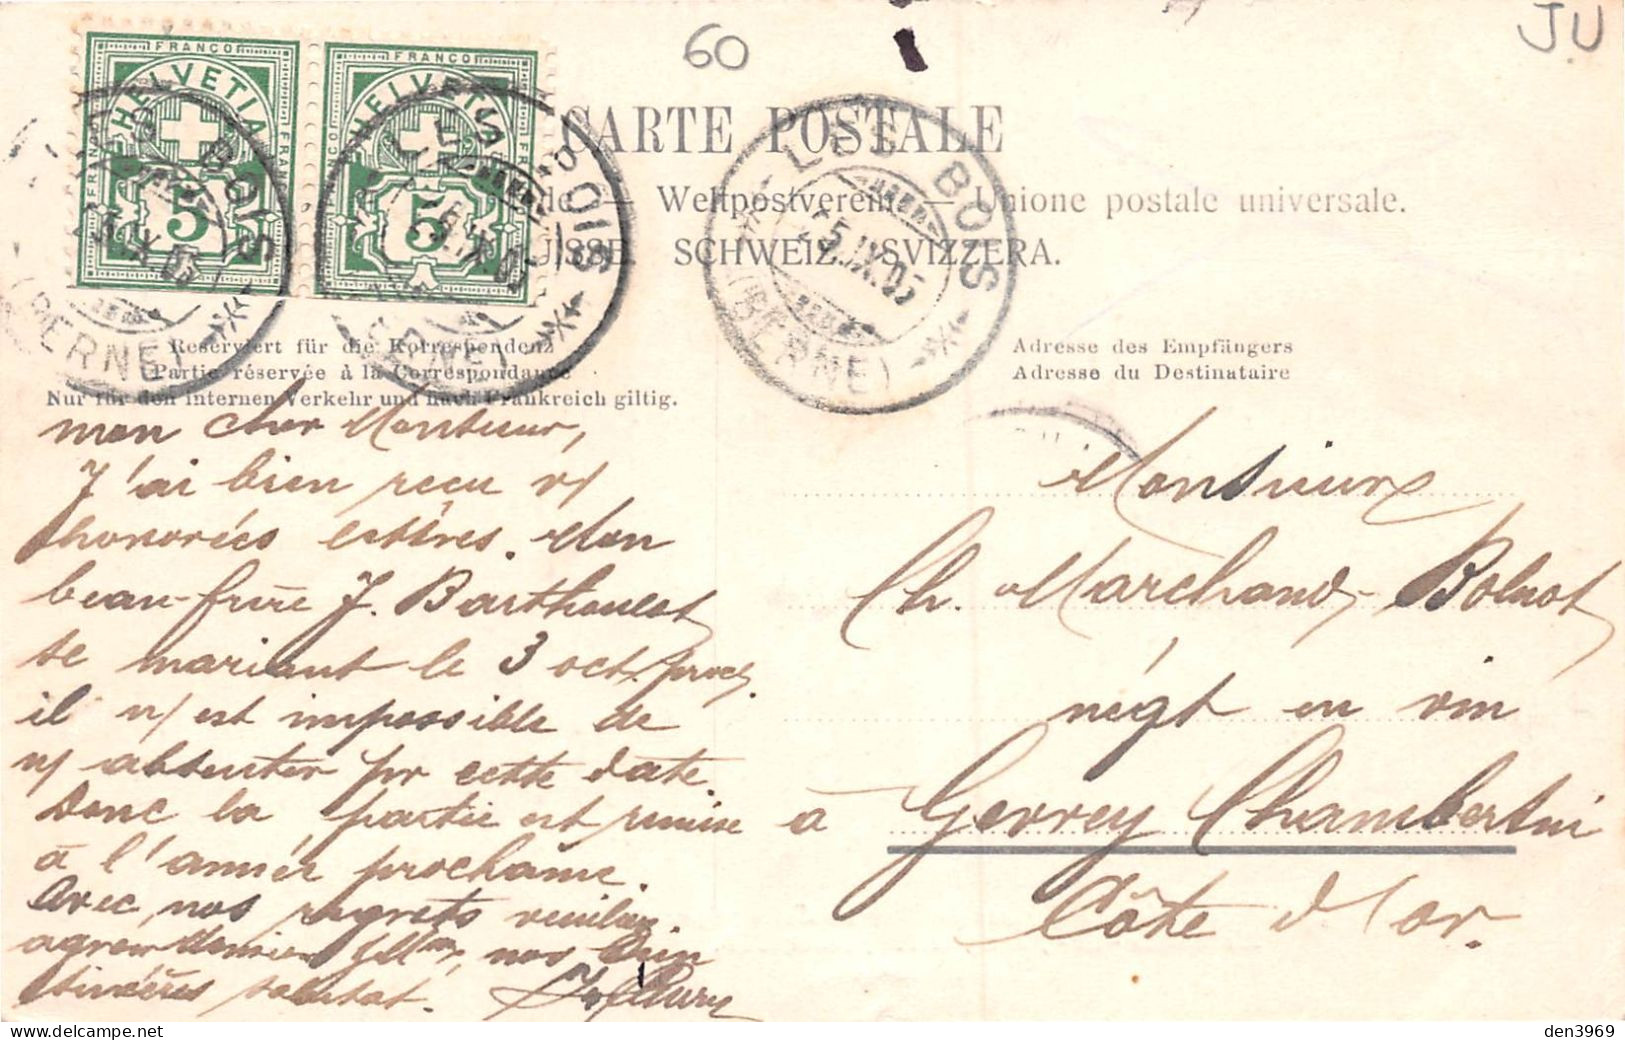 60
JU
FRANCO
HELVETIA
FRANCO
FRANCO
5
FRANCO
HELVETIA
FRANCO
FRANCO
5
LES BOIS
25.IX.05
(BERNE)
CARTE POSTALE
de — Weltpostverein — Unione postale universale.
SUISSE. SCHWEIZ. SVIZZERA.
Reserviert für die Korrespondenz
Partie réservée à la Correspondance
Nur für den internen Verkehr und nach Frankreich giltig.
Adresse des Empfängers
Adresse du Destinataire
mon cher Monsieur,
J'ai bien reçu v/
honorées lettres. Mon
beau-frère J. Barthoulot
se mariant le 3 oct. proch.
il n/ est impossible de
n/ absenter pr cette date.
Donc la partie est remise
à l'année prochaine.
Avec nos regrets veuillez
agréer Monsieur nos bien
sincères salutat.
Monsieur
Ch. Marchand-Bolnot
négt en vin
à Gevrey Chambertin
Côte d'or.
den3969